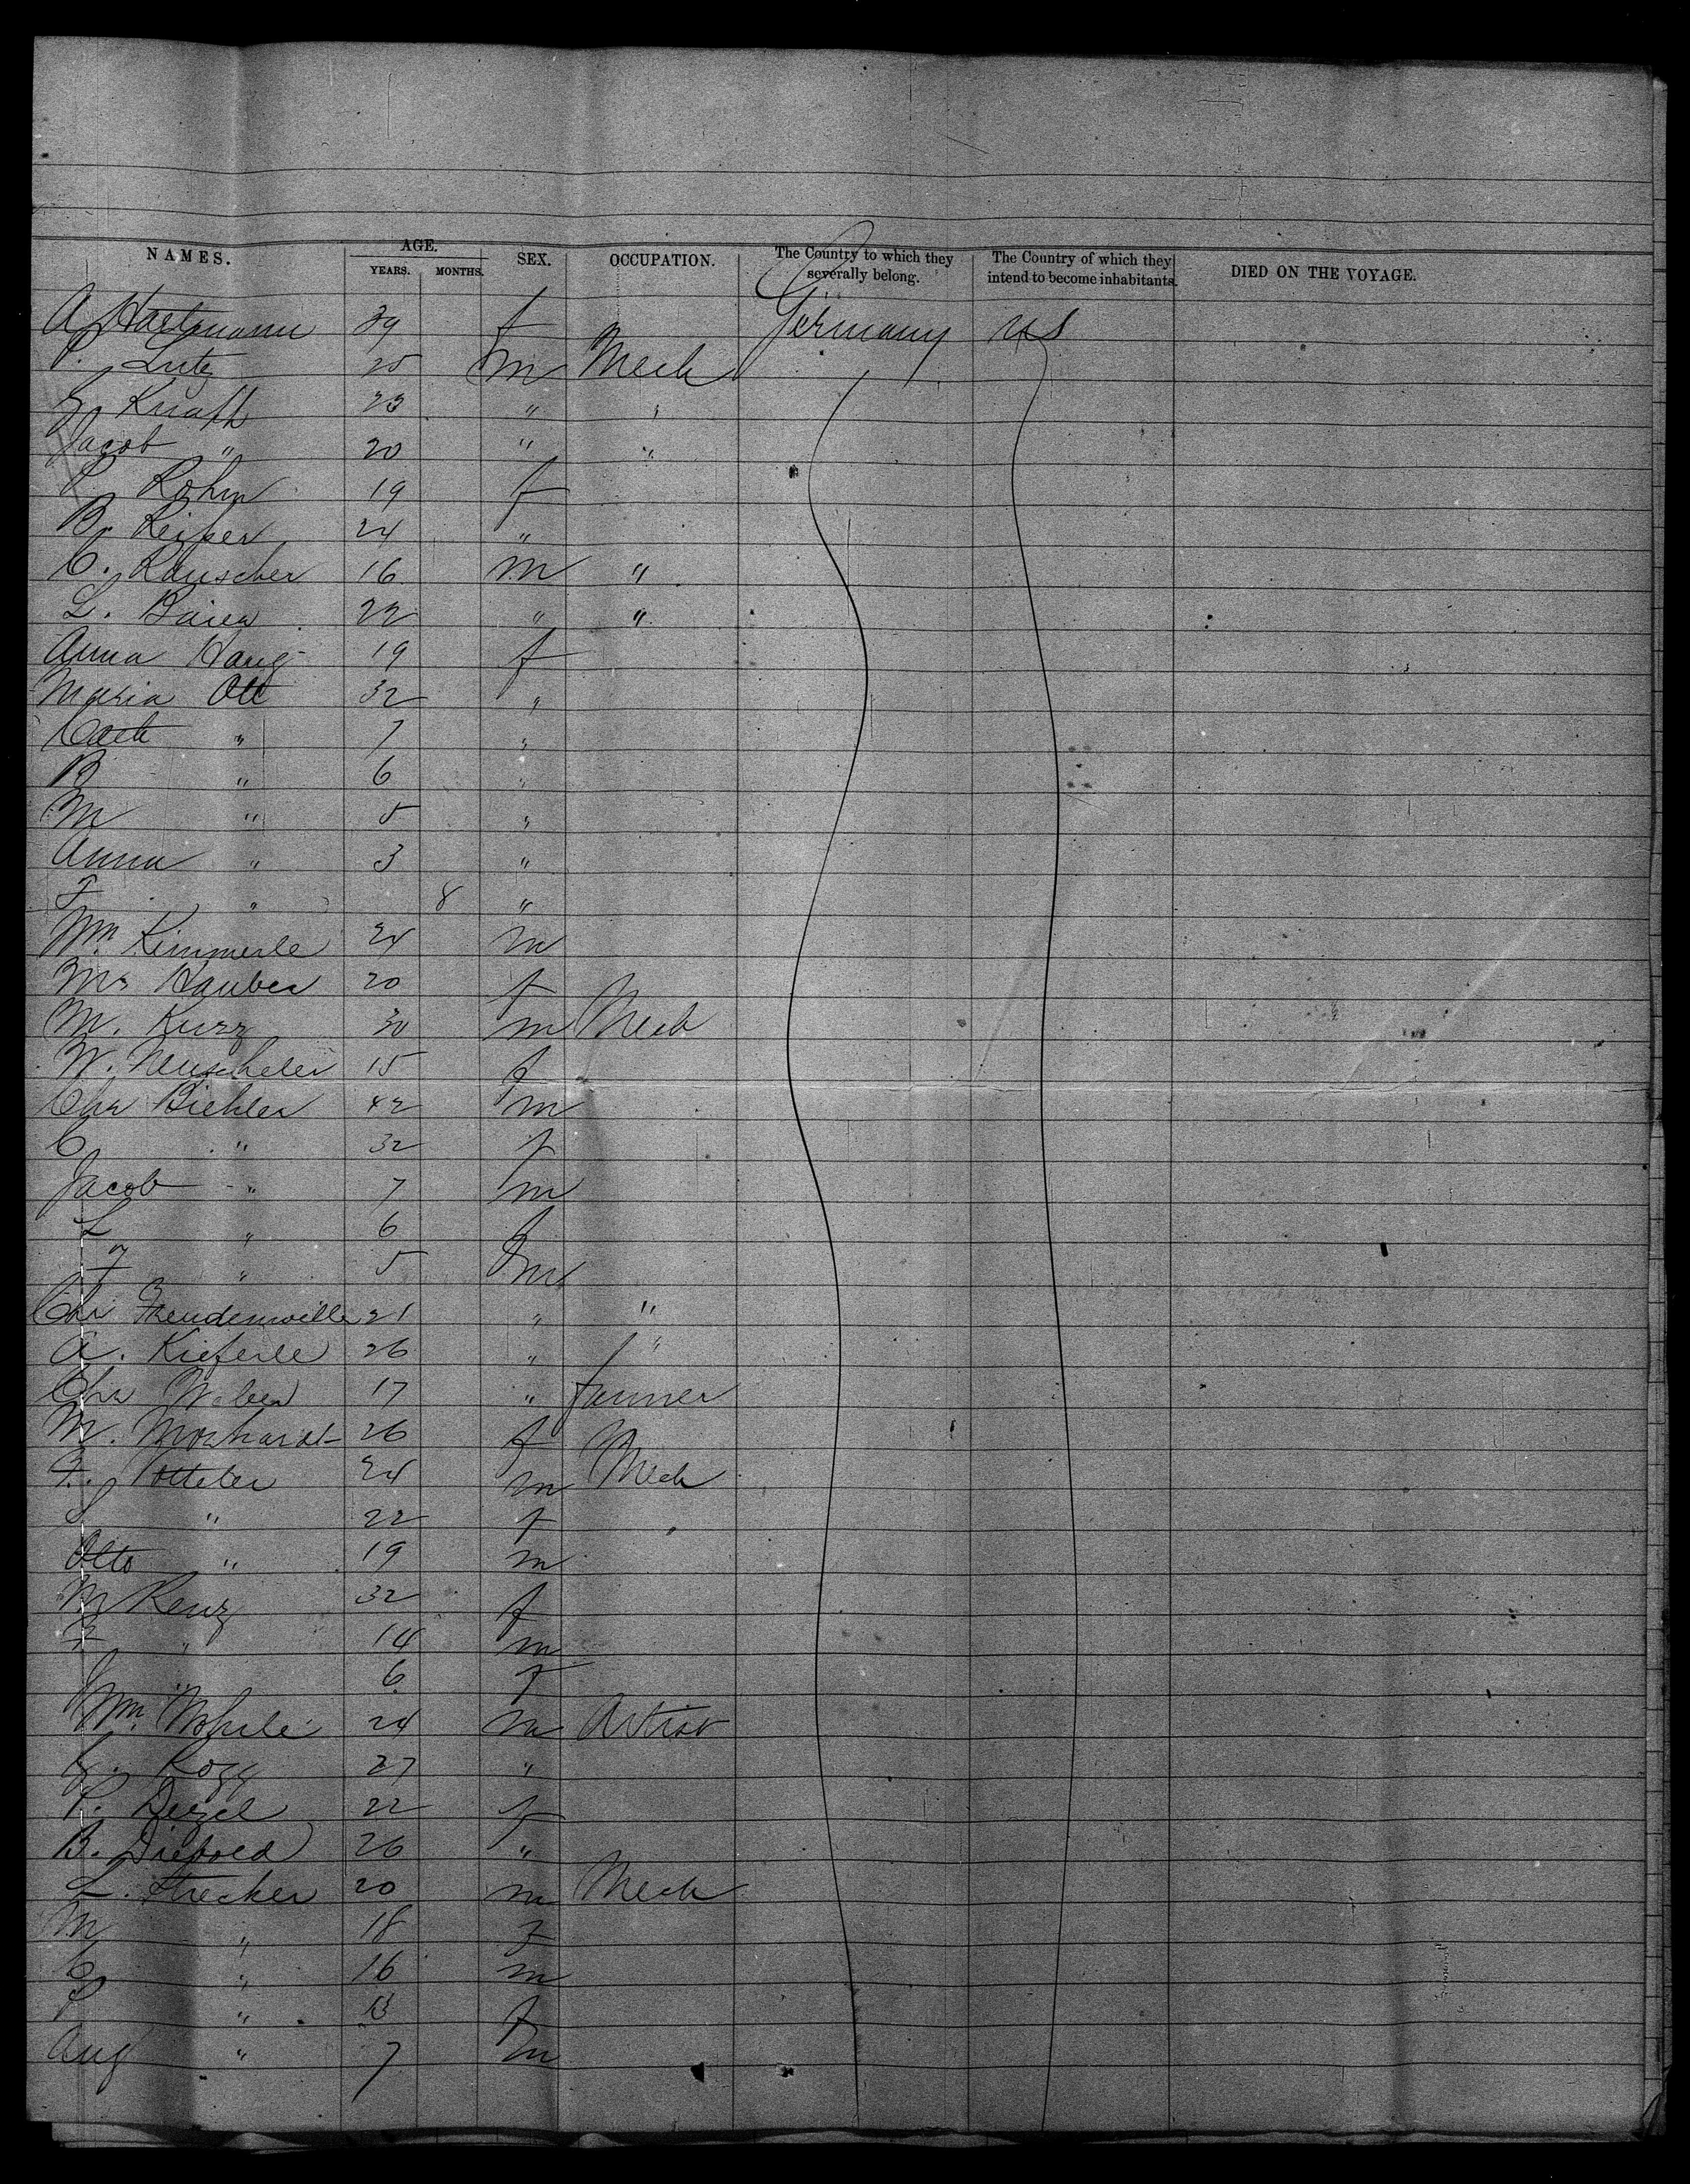 NAMES. AGE. YEARS. MONTHS. SEX. OCCUPATION. The Country to which they severally belong. The Country of which they intend to become inhabitants. DIED ON THE VOYAGE.
A Hartmann 39 f Germany US
P. Lutz 25 m Mech
G. Knapp 23 " "
Jacob " 20 " "
P Rohm 19 f
B. Keiper 24 "
C. Rauscher 16 m "
L. Baier 22 " "
Anna Haug 19 f
Maria Ott 32 "
Cath " 7 "
B " 6 "
M " 5 "
Anna " 3 "
F " 8 "
Wm Kimmerle 24 m
Mr Hauber 20 f
M. Kurz 30 m Mech
W. Neuscheler 15 f
Chr Biehler 42 m
C " 32 f
Jacob " 7 m
L " 6 f
F " 5 m
Chr Freudenweiller 21 " "
A. Kieferle 26 " "
Chr Weber 17 " farmer
M. Morhardt 26 f
F. Votteler 24 m Mech
S " 22 f "
Otto " 19 m
M Renz 32 f
F " 14 m
J " 6 f
Wm. Wohrle 24 m Artist
G. 27 "
P. Diezel 22 f
B. Diebold 26 "
L. Strecker 20 m Mech
M " 18 f
C " 16 m
P " 13 f
Aug " 7 m